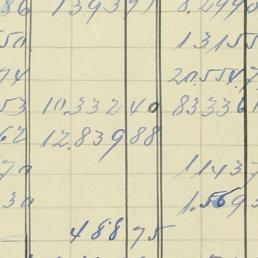 86 139391 8.2990
50 13155
74 20.554.7
53 10.332 40 83336
62 12.839 88
70 11437
30 1.569
488 75